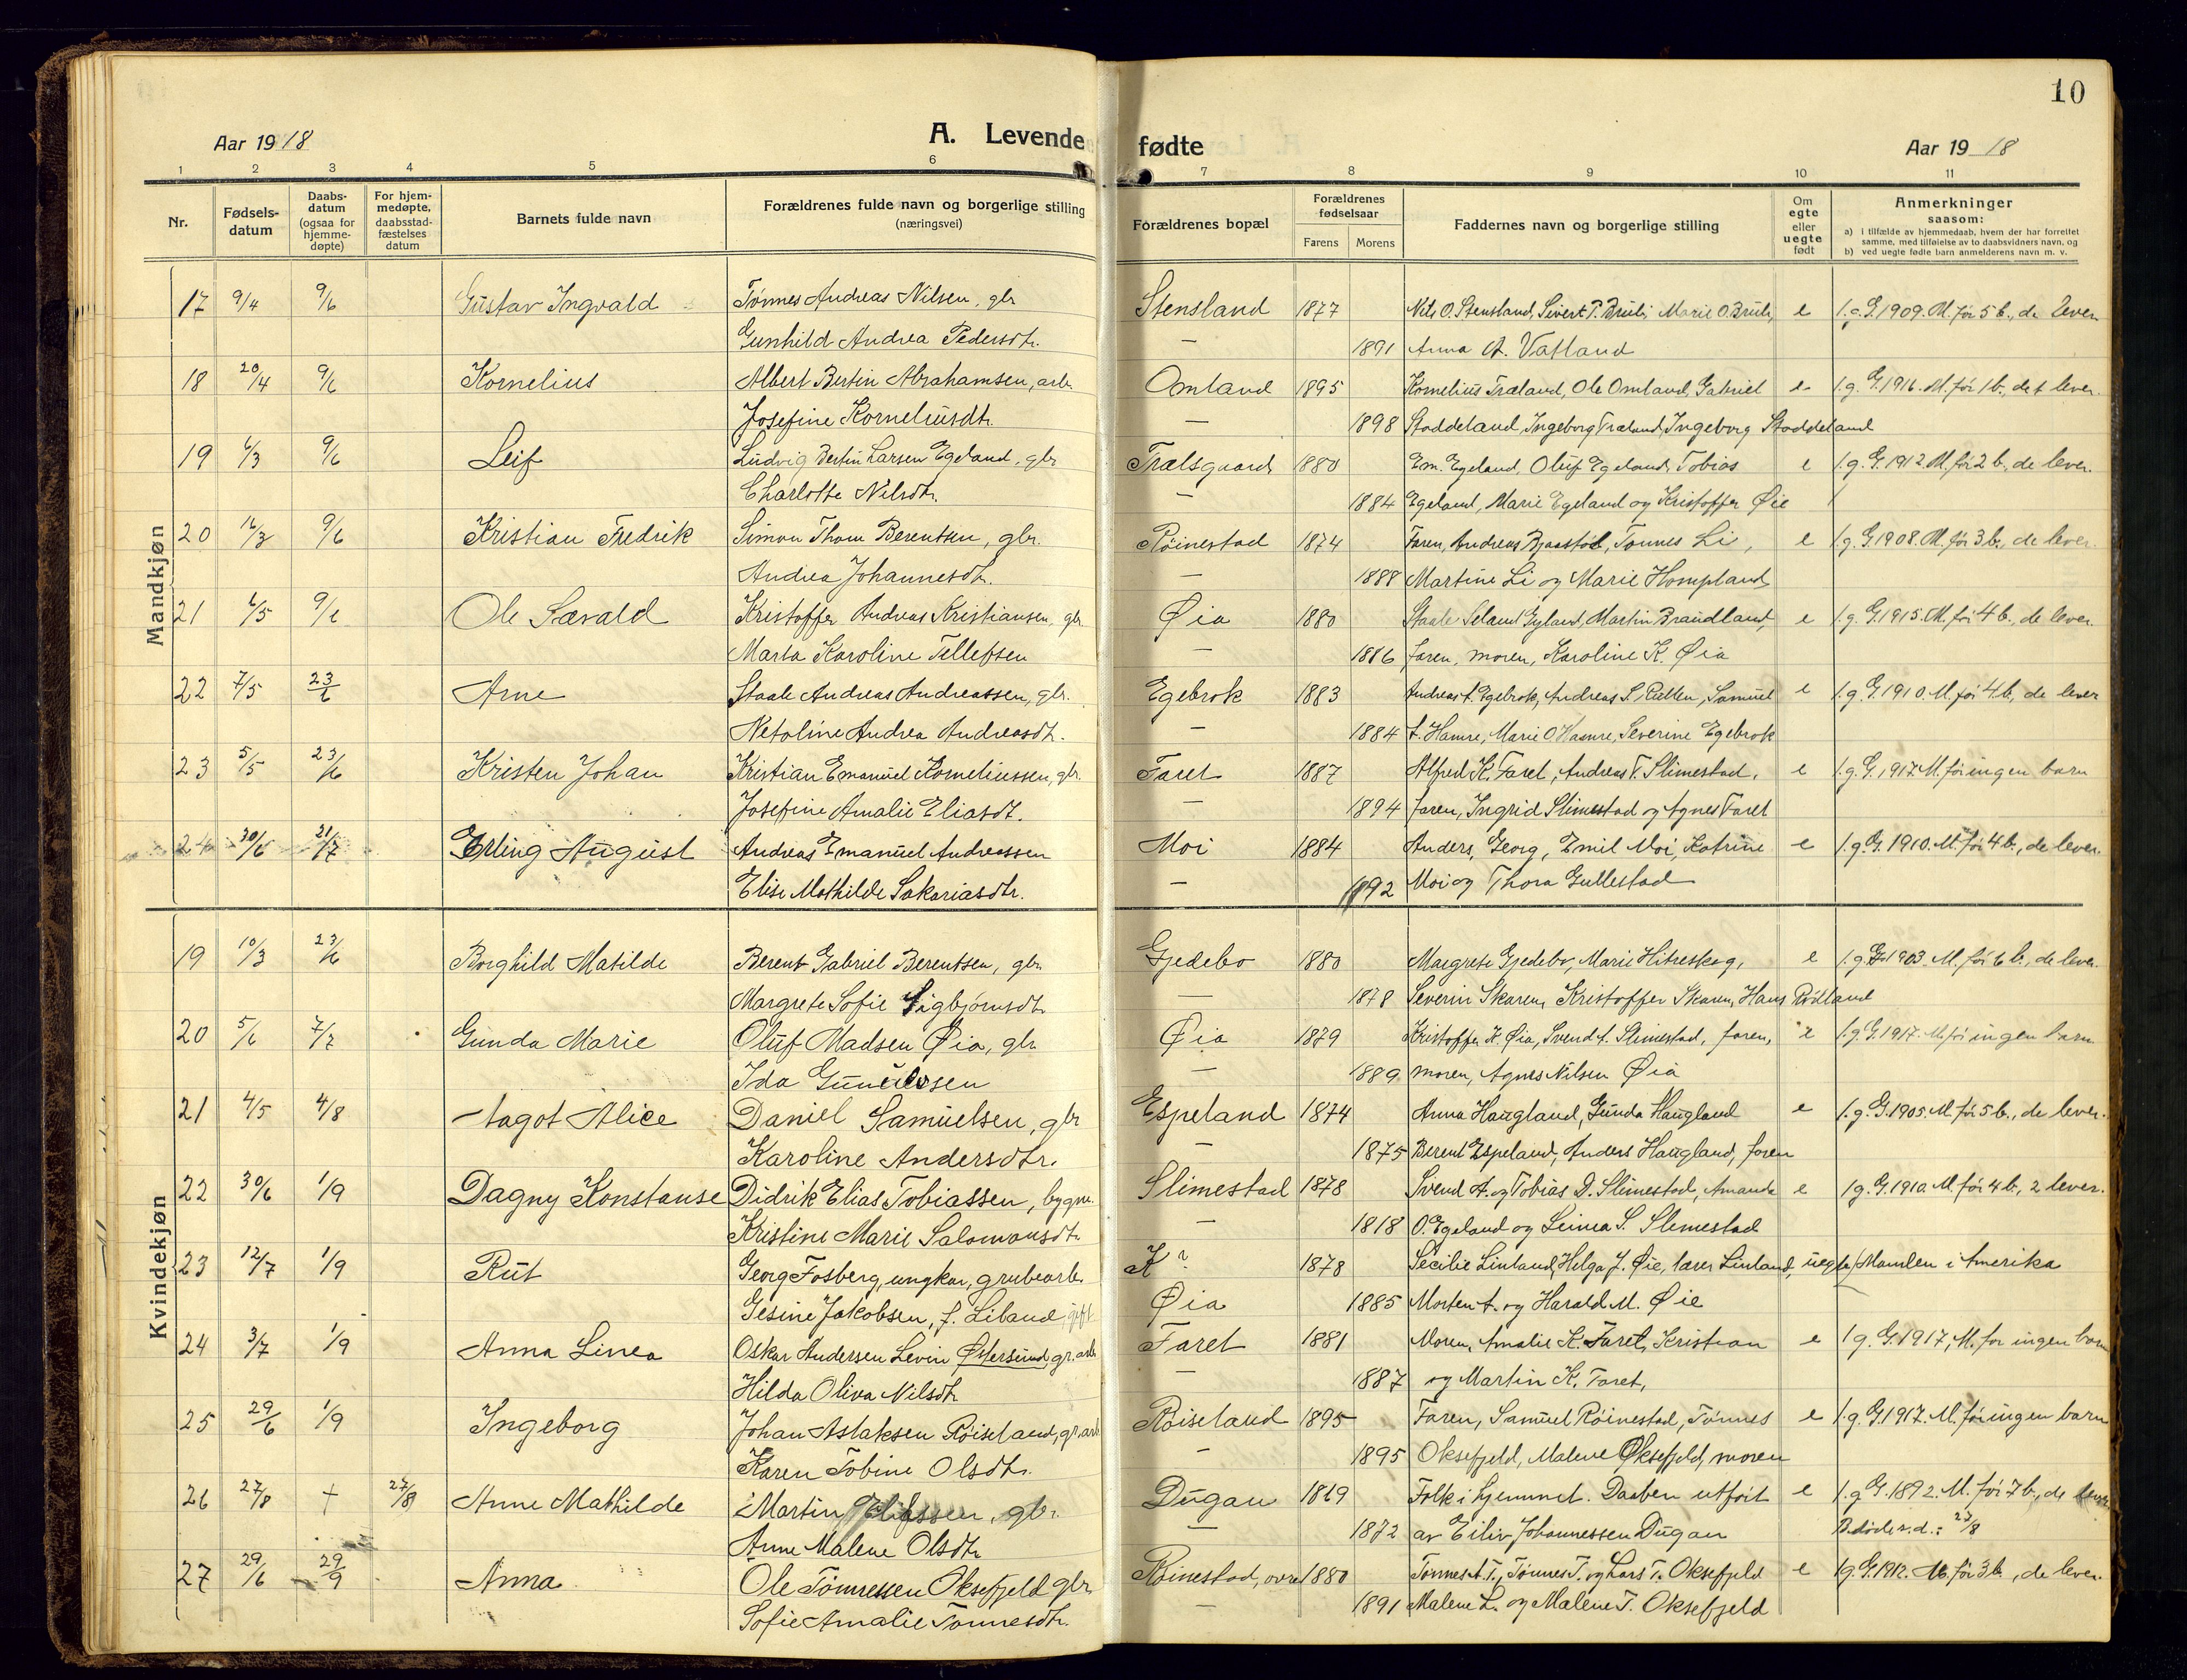 10
Aar 1918 A. Levende fødte Aar 1918
1 2 3 4 5 6 7 8 9 10 11
Nr. Fødsels-datum Daabs-datum (ogsaa for hjemme-døpte) For hjem-medøpte, daabsstad-fæstelses datum Barnets fulde navn Forældrenes fulde navn og borgerlige stilling (næringsvei) Forældrenes bopæl Forældrenes fødselsaar Farens Morens Faddernes navn og borgerlige stilling Om egte eller uegte født Anmerkninger saasom:
a) i tilfælde av hjemmedaab, hvem der har forrettet samme, med tilføielse av to daabsvidners navn, og
b) ved uegte fødte barn anmelderens navn m. v.
Mandkjøn
17 9/4 9/6 Gustav Ingvald Tønnes Andreas Nilsen, gbr Stensland 1877 Nils O. Stensland, Sivert T. Bruli, Marie O. Bruli, e 1. g. G. 1909. M. før 5 b., de lever
Gunhild Andrea Pedersdtr. — 1891 Anna A. Vatland
18 20/4 9/6 Kornelius Albert Bertin Abrahamsen, arb. Omland 1895 Kornelius Træland, Ole Omland, Gabriel e 1. g. G. 1916. M. før 1 b., det lever.
Josefine Korneliusdtr. — 1898 Stoddeland, Ingeborg Træland, Ingeborg Stoddeland
19 6/3 9/6 Leif Ludvig Bertin Larsen Egeland, gbr Trælsgaard 1880 Em. Egeland, Oluf Egeland, Tobias e 1. g. G. 1912. M. før 2 b., de lever.
Charlotte Nilsdtr. — 1884 Egeland, Marie Egeland og Kristoffer Øie
20 16/3 9/6 Kristian Fredrik Simon Thom Berentsen, gbr. Røinestad 1874 Faren, Andreas Bjaastøl, Tønnes Li, e 1. g. G. 1908. M. før 3 b., de lever.
Andrea Johannesdtr. — 1888 Martine Li og Marie Hompland
21 6/5 9/6 Ole Sævald Kristoffer Andreas Kristiansen, gbr. Øia 1880 Staale Seland Gyland, Martin Brandland, e 1. g. G. 1915. M. før 4 b., de lever.
Marta Karoline Tellefsen — 1886 faren, moren, Karoline K. Øia
22 7/5 23/6 Arne Staale Andreas Andreassen, gbr. Egebrok 1883 Andreas A. Egebrok, Andreas S. Rullen, Samuel e 1. g. G. 1910. M. før 4 b., de lever
Netoline Andrea Andreasdtr. — 1884 A. Hamre, Marie O. Hamre, Severine Egebrok
23 5/5 23/6 Kristen Johan Kristian Emanuel Korneliussen, gbr. Faret 1887 Alfred K. Faret, Andreas T. Slimestad, e 1. g. G. 1917. M. før ingen barn
Josefine Amalie Eliasdt. — 1894 faren, Ingrid Slimestad og Agnes Faret
24 30/6 21/7 Erling August Andreas Emanuel Andreassen Moi 1884 Anders, Georg, Emil Moi, Katrine e 1. g. G. 1910. M. før 4 b., de lever.
Elise Mathilde Sakariasdtr. — 1892 Moi og Thora Gullestad
Kvindekjøn
19 10/3 23/6 Borghild Matilde Berent Gabriel Berentsen, gbr. Gjedebo 1880 Margrete Gjedebo, Marie Hitreskog, e 1. g. G. 1903. M. før 6 b., de lever.
Margrete Sofie Sigbjørnsdtr. — 1878 Severin Skaren, Kristoffer Skaren, Hans Rødland
20 5/6 7/7 Gunda Marie Oluf Madsen Øia, gbr Øia 1879 Kristoffer K. Øia, Svend A. Slimestad, faren, e 1. g. G. 1917. M. før ingen barn
Ida — 1889 moren, Agnes Nilsen Øia
21 4/5 4/8 Aagot Alice Daniel Samuelsen, gbr Espeland 1874 Anna Haugland, Gunda Haugland e 1. g. G. 1905. M. før 5 b., de lever.
Karoline Andersdtr. — 1875 Berent Espeland, Anders Haugland, faren
22 30/6 1/9 Dagny Konstanse Didrik Elias Tobiassen, bygm. Slimestad 1878 Svend A. og Tobias D. Slimestad, Amanda e 1 g. G. 1910. M. før 4 b., 2 lever.
Kristine Marie Salomonsdtr. — 1818 O. Egeland og Leinea S. Slimestad
23 12/7 1/9 Rut Georg Fosberg, ungkar, grubearb. K? 1878 Secilie Linland, Helga J. Øie, lærer Linland, uegte Manden i Amerika
Gesine Jakobsen, f. Liland, gift Øia 1885 Morten A. og Harald M. Øie
24 3/7 1/9 Anna Linea Oskar Andersen Levin Østersund, gr. arb. Faret 1881 Moren, Amalie K. Faret, Kristian e 1 g. G. 1917, M. før ingen barn
Hilda Oliva Nilsdtr — 1887 og Martin K. Faret,
25 29/6 1/9 Ingeborg Johan Aslaksen Røiseland, gr. arb. Røiseland 1895 Faren, Samuel Røinestad, Tønnes e 1. g. G. 1917. M. før ingen barn
Karen Tobine Olsdtr. — 1895 Oksefjeld, Malene Oksefjeld, moren
26 27/8 † 27/8 Anne Mathilde Martin Eliassen, gbr. Dugan 1869 Folk i hjemmet. Daaben utført e 1. g G. 1892. M. før 7 b., de lever
Anne Malene Olsdtr — 1872 av Eiliv Johannessen Dugan B. døde s. d.: 27/8
27 29/6 29/9 Anna Ole Tønnessen Oksefjeld gbr. Røinestad, øvre 1880 Tønnes A. T., Tønnes T. og Lars T. Oksefjeld e 1 g. G. 1912. M. før 3 b., de lever.
Sofie Amalie Tønnesdtr. — 1891 Malene L. og Malene T. Oksefjeld